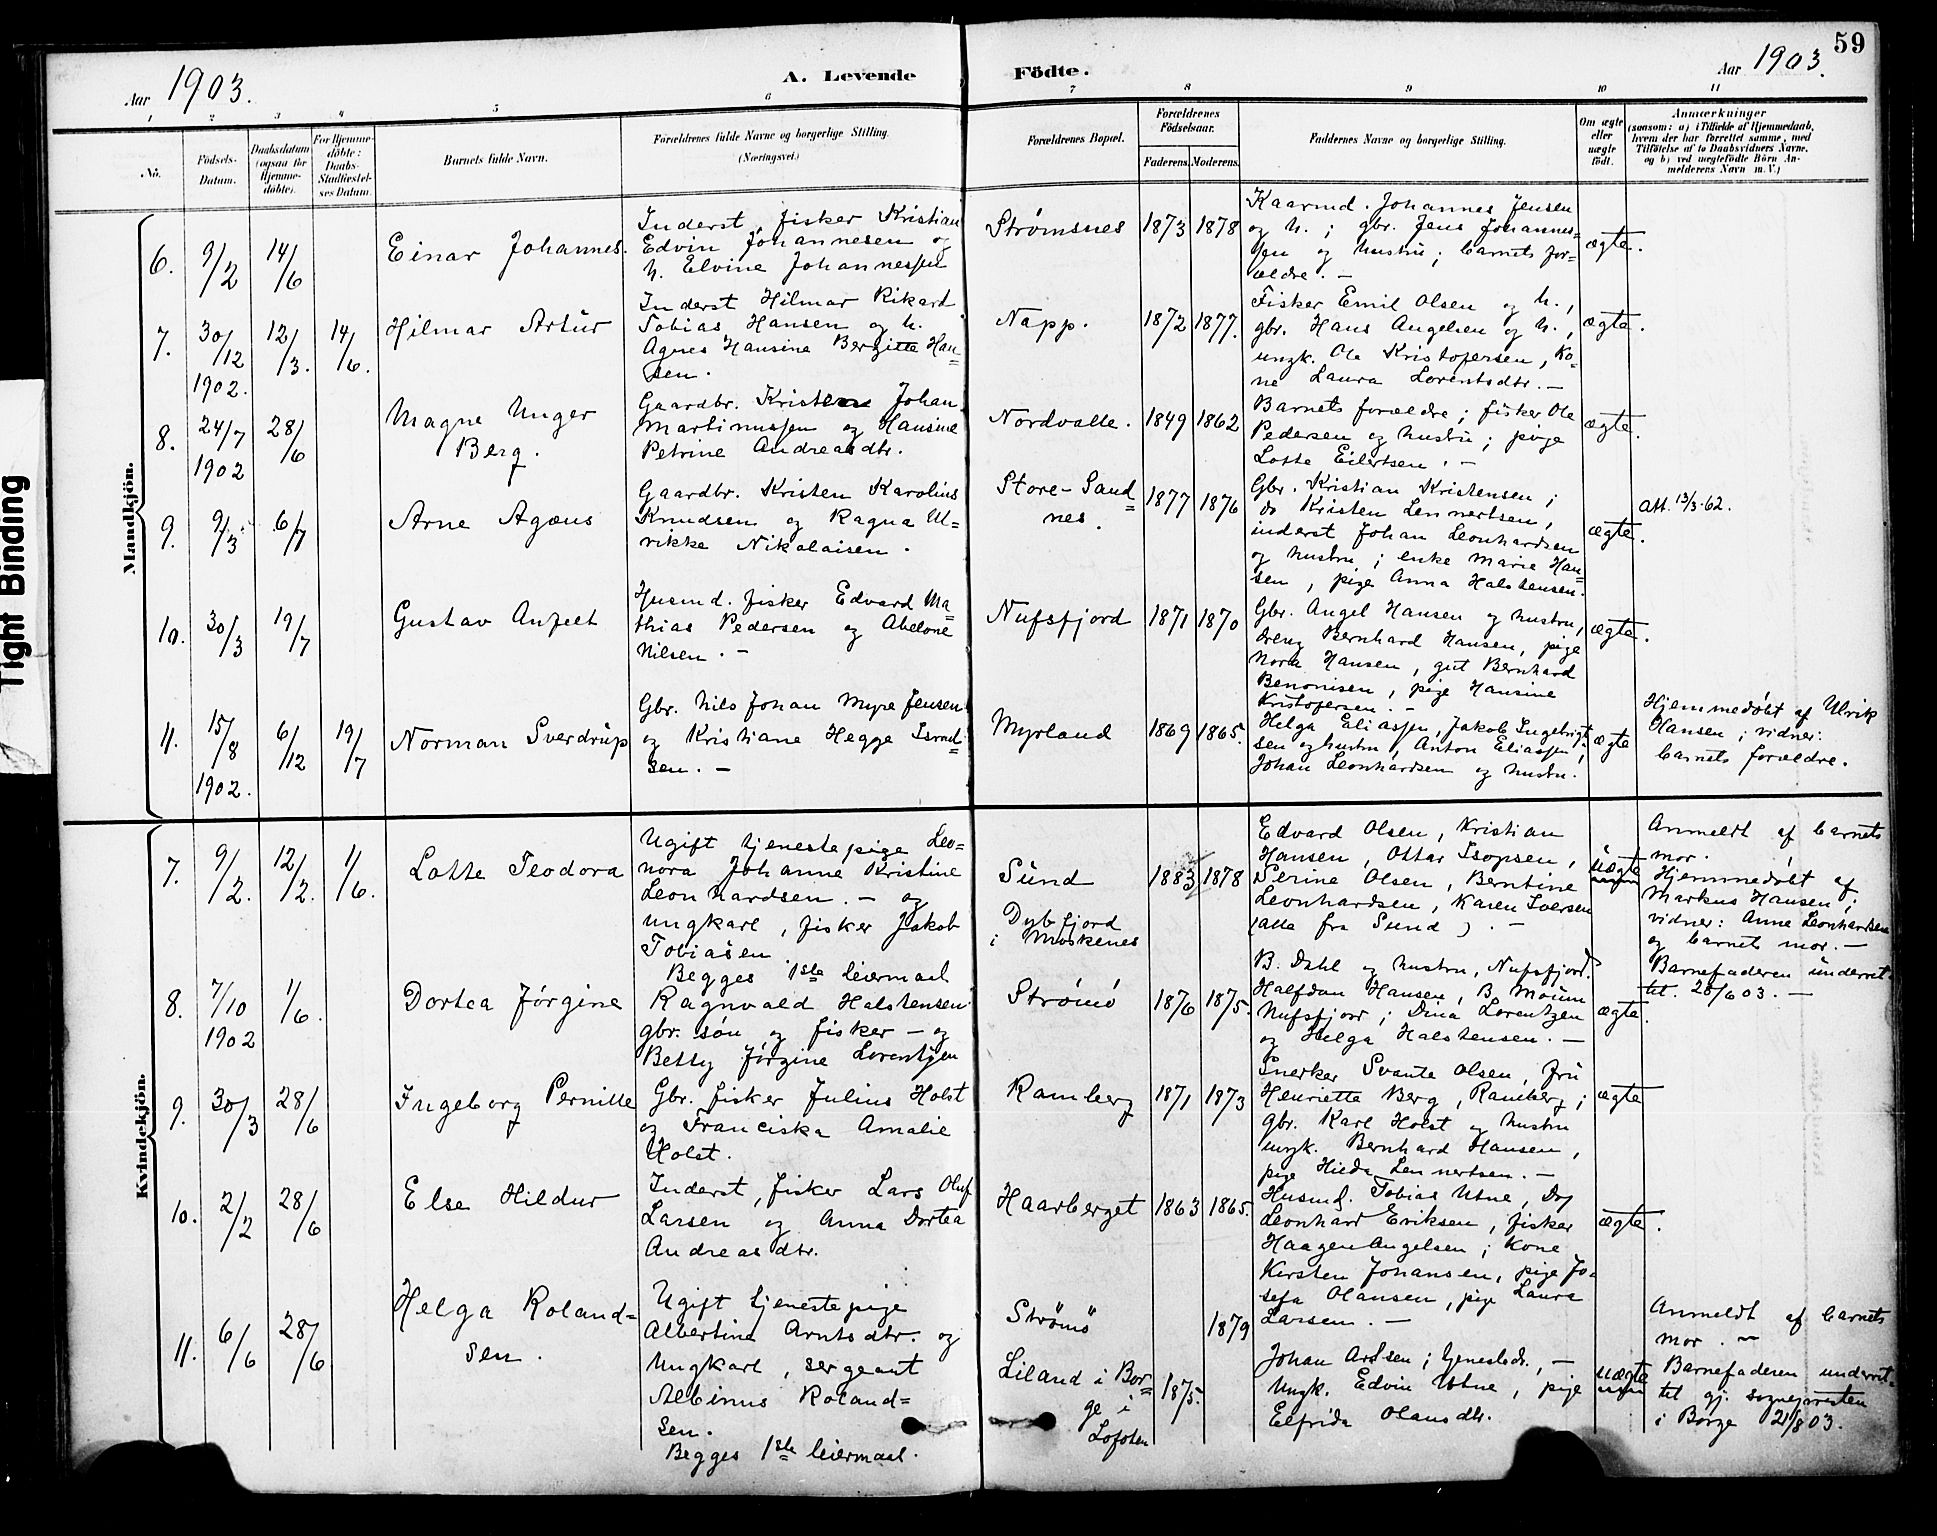 59
Aar 1903.
A. Levende
Födte.
Aar 1903.
1
2
3
4
5
6
7
8
9
10
11
No.
Födsels-
Datum.
Daabsdatum
(ogsaa for
Hjemme-
döbte).
For Hjemme-
döbte:
Daabs-
Stadfæstel-
ses Datum.
Barnets fulde Navn.
Forældrenes fulde Navne og borgerlige Stilling.
(Næringsvei.)
Forældrenes Bopæl.
Forældrenes
Födselsaar.
Faderens.
Moderens.
Faddernes Navne og borgerlige Stilling.
Om ægte
eller
uægte
födt.
Anmærkninger
(saasom: a) i Tilfælde af Hjemmedaab,
hvem der har forrettet samme, med
Tilföielse af to Daabsvidners Navne,
og b) ved uægtefödte Börn An-
melderens Navn m. V.)
Mandkjön.
6.
9/2
14/6
Einar Johannes.
Inderst, fisker Kristian
Edvin Johannesen og
h. Elvine Johannessen
Strømsnes
1873
1878
Kaarmd. Johannes Jensen
og h.; gbr. Jens Johannes-
sen og hustru; barnets for-
ældre. -
ægte.
7.
30/12
1902.
12/3.
14/6.
Hilmar Artur
Inderst Hilmar Rikard
Tobias Hansen og h.
Agnes Hansine Bergitte Han=
sen.
Napp.
1872
1877.
Fisker Emil Olsen og h.,
gbr. Hans Angelsen og h.,
ungk. Ole Kristofersen, Ko-
ne Laura Lorentsdtr. -
ægte.
8.
24/7
1902
28/6
Magne Unger
Berg.
Gaardbr. Kristen Johan
Martinussen og Hansine
Petrine Andreasdtr.
Nordvalle.
1849
1862
Barnets forældre; fisker Ole
Pedersen og hustru; pige
Lotte Eilertsen. -
ægte.
9.
9/3
6/7
Arne Agæus
Gaardbr. Kristen Karolius
Knudsen og Ragna Ul-
rikke Nikolaisen.
Store-Sand=
nes.
1877
1876
Gbr. Kristian Kristensen;
do Kristen Lennertsen,
inderst Johan Leonhardsen
og hustru; enke Marie Han=
sen, pige Anna Halstensen.
ægte.
Att. 13/3-62.
10.
30/3
19/7
Gustav Anfelt
Husmd. fisker Edvard Ma-
thias Pedersen og Abelone
Nilsen. -
Nufsfjord
1871
1870
Gbr. Angel Hansen og hustru,
dreng Bernhard Hansen, pige
Nora Hansen, gut Bernhard
Benonisen, pige Hansine
Kristofersen. -
ægte.
11.
15/8
1902.
6/12
19/7
Norman Sverdrup
Gbr. Nils Johan Myre Jensen
og Kristiane Hegge Isrıel=
sen. -
Myrland
1869
1865.
Helga Eliassen, Jakob Ingebrigt-
sen og hustru, Anton Eliassen;
Johan Leonhardsen og hustru.
ægte
Hjemmedøbt af Ulrik
Hansen; vidner:
barnets forældre.
Kvindekjön.
7.
9/2.
12/2.
1/6.
Lotte Teodora
Ugift tjenestepige Leo=
nora Johanne Kristine
Leonhardsen. - og
ungkarl, fisker Jakob
Tobiasen.
Begges 1ste leiermaal
Sund
Dybfjord
i Moskenes
1883
1878
Edvard Olsen, Kristian
Hansen, Ottar Isopsen,
Serine Olsen, Berntine
Leonhardsen, Karen Iversen
(alle fra Sund). -
uægte
Anmeldt af barnets
mor.
Hjemmedøbt af
Markus Hansen;
vidner: Anne Leonhardsen
og barnets mor. -
Barnefaderen underret-
tet. 28/6 03. -
8.
7/10
1902
1/6.
Dortea Jørgine
Ragnvald Halstensen
gbr. søn og fisker - og
Betty Jørgine Lorentzen
Strömö
1876
1875.
B. Dahl og hustru, Nufsfjord.
Halfdan Hansen, B. Moium
Nufsfjord; Dina Lorentzen
og Helga Halstensen. -
ægte.
9.
30/3
28/6
Ingeborg Pernille
Gbr. fisker Julius Holst
og Franciska Amalie
Holst.
Ramberg
1871
1873
Snerker Svante Olsen, fru
Henrietta Berg, Ramberg;
gbr. Karl Holst og hustru
ungk. Bernhard Hansen,
pige Hilda Lennertsen. -
ægte
10.
2/2
28/6
Else Hildur
Inderst, fisker Lars Oluf
Larsen og Anna Dortea
Andreasdtr.
Haarberget
1863
1865.
Husmd. Tobias Utne, Do
Leonhard Eriksen, fisker
Haagen Angelsen; Kone
Kirsten Johansen, pige Jo-
sefa Olausen, pige Laura
Larsen. -
ægte.
11.
6/6
28/6
Helga Roland=
sen.
Ugift tjenestepige
Albertina Arntsdtr. og
Ungkarl, sergeant
Albinus Roland=
sen.
Begges 1ste leiermaal.
Strömö
Liland i Bor-
ge i
Lofoten
1875.
1879
Johan Arntsen; tjenestedr., -
Ungk. Edvin Utne, pige
Elfrida Olausdtr.
uægte
Anmeldt af barnets
mor. -
Barnefaderen underret-
tet gj. sognepresten
i Borge 21/8 03.
Tight Binding